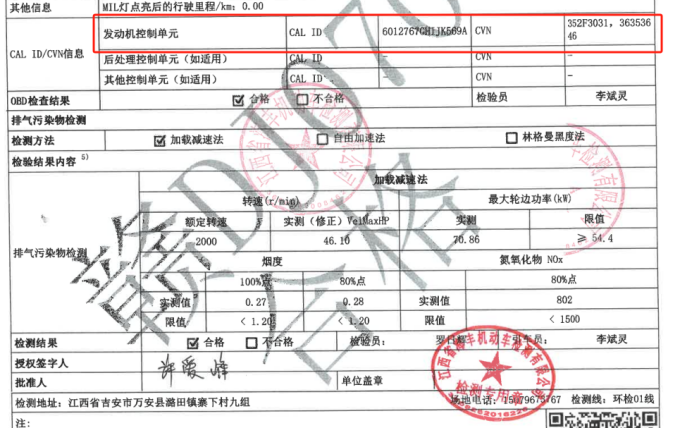 其他信息 MIL灯点亮后的行驶里程/km: 0.00
CAL ID/CVN信息
发动机控制单元 CAL ID 6012767GHIJK569A CVN 352F3031, 36353646
后处理控制单元（如适用） CAL ID - CVN -
其他控制单元（如适用） CAL ID - CVN -
OBD检查结果 ☑ 合格 ☐ 不合格 检验员 李斌灵
排气污染物检测
检测方法 ☑ 加载减速法 ☐ 自由加速法 ☐ 林格曼黑度法
检验结果内容 5)
排气污染物检测
加载减速法
转速(r/min) 最大轮边功率(kW)
额定转速 实测（修正）VelMaxHP 实测 限值
2000 46.10 70.86 ≥ 54.4
烟度 氮氧化物 NOx
100%点 80%点 80%点
实测值 0.27 0.28 实测值 802
限值 < 1.20 < 1.20 限值 < 1500
检测结果 ☑ 合格 ☐ 不合格 检验员: 引车员: 李斌灵
授权签字人
批准人 单位盖章
检测地址: 江西省吉安市万安县潞田镇寨下村九组 场地电话: 15079675767 检测线: 环检01线
注:
赣DJ070
合格
检测专用章